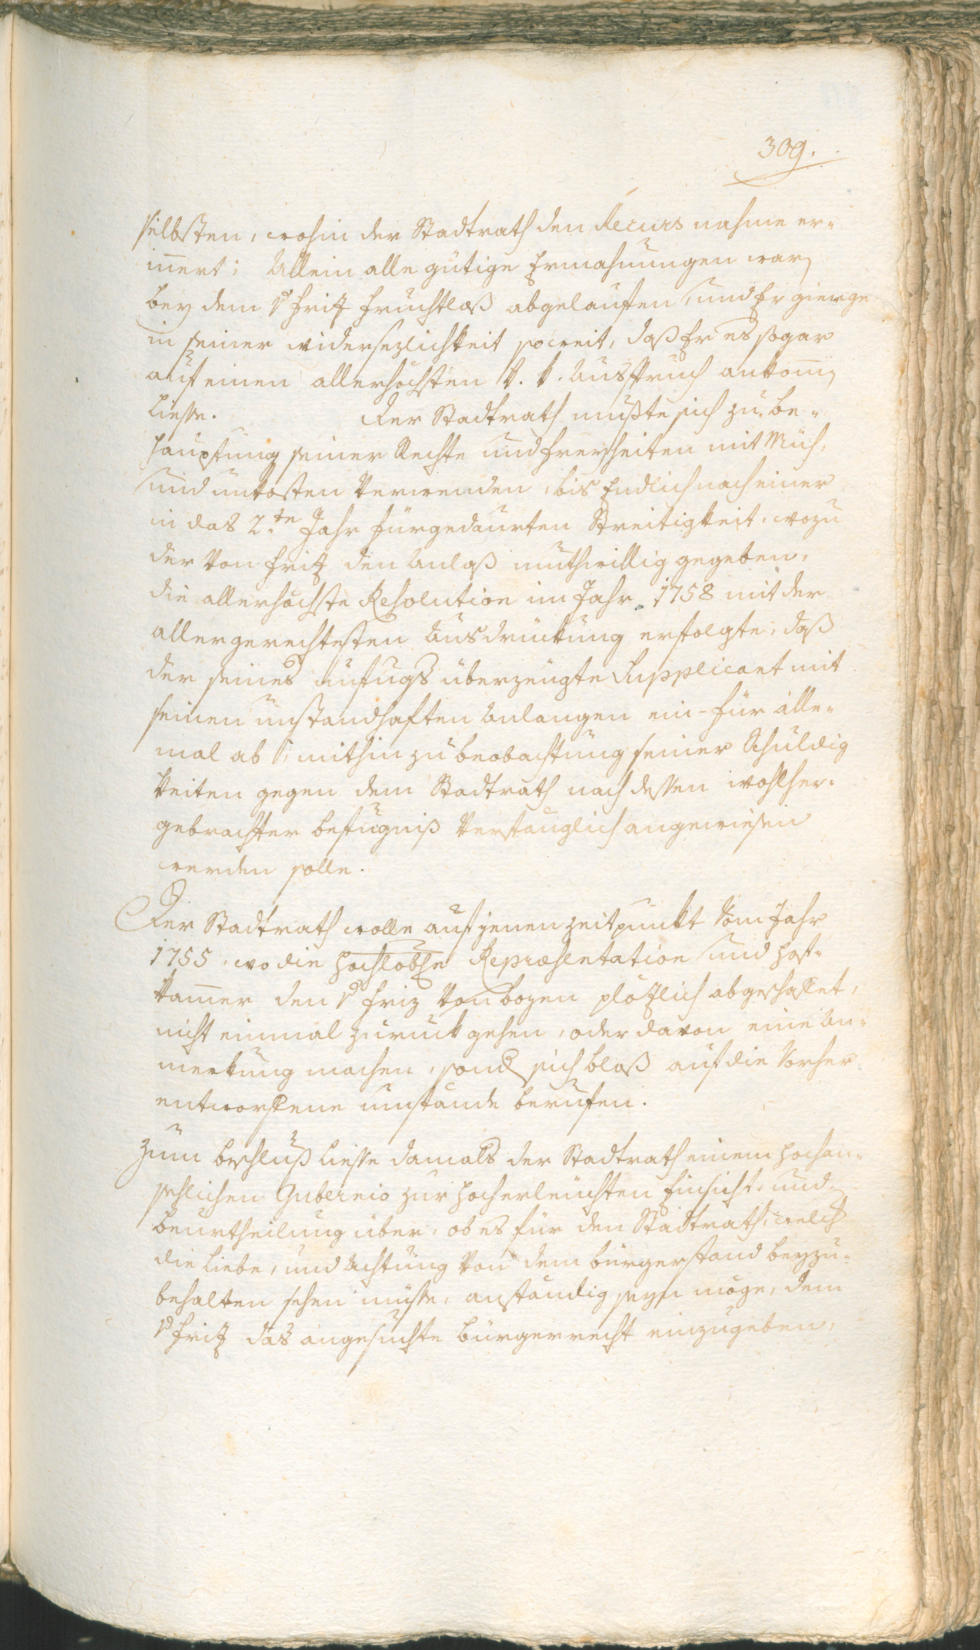 309.
selbsten, wohin der Stadtrath den Recurs nahme er-
inert; Allein alle gütige Ermahnungen war
bey dem v Friz fruchtloß abgelaufen, und Er gienge
in seiner widersezlichkeit so weit, daß Er es sogar
auf einen allerhöchsten k. k. Ausspruch ankom
liesse. Der Stadtrath mußte sich zu be-
hauptung seiner Rechte und Freyheiten mit Müh,
und unkosten verwenden, bis Endlich nach einer
in das 2.te Jahr fürgedaurten Streitigkeit, wozu
der von Friz den Anlaß muthwillig gegeben,
die allerhöchste Resolution im Jahr 1758 mit der
allergerechtesten Ausdrückung erfolgte, daß
der seines unfugs überzeugte Supplicant mit
seinen unstandhaften Anlangen ein- für alle-
mal ab, mithin zu beobachtung seiner Schuldig
keiten gegen dem Stadtrath nach dessen wohlher-
gebrachter befugniß verfänglich angewiesen
werden solle.
Der Stadtrath wolle auf jenen zeitpunkt vom Jahr
1755, wo die hochlobe Repraesentation und Hof-
kamer den v Friz von bozen plözlich abgeschafet,
nicht einmal zuruck gehen, oder davon eine An-
merkung machen, sond sich bloß auf die vorher
entworfene umstände berufen.
Zum beschluß liesse damals der Stadtrath einem hochan-
sehlichen Gubernio zur hocherleuchten Einsicht, und
beurtheilung über, ob es für den Stadtrath, welch
die liebe, und Achtung von dem bürgerstand beyzu-
behalten sehen müsse, anständig seyn möge, dem
v Friz das angesuchte bürgerrecht einzugeben,